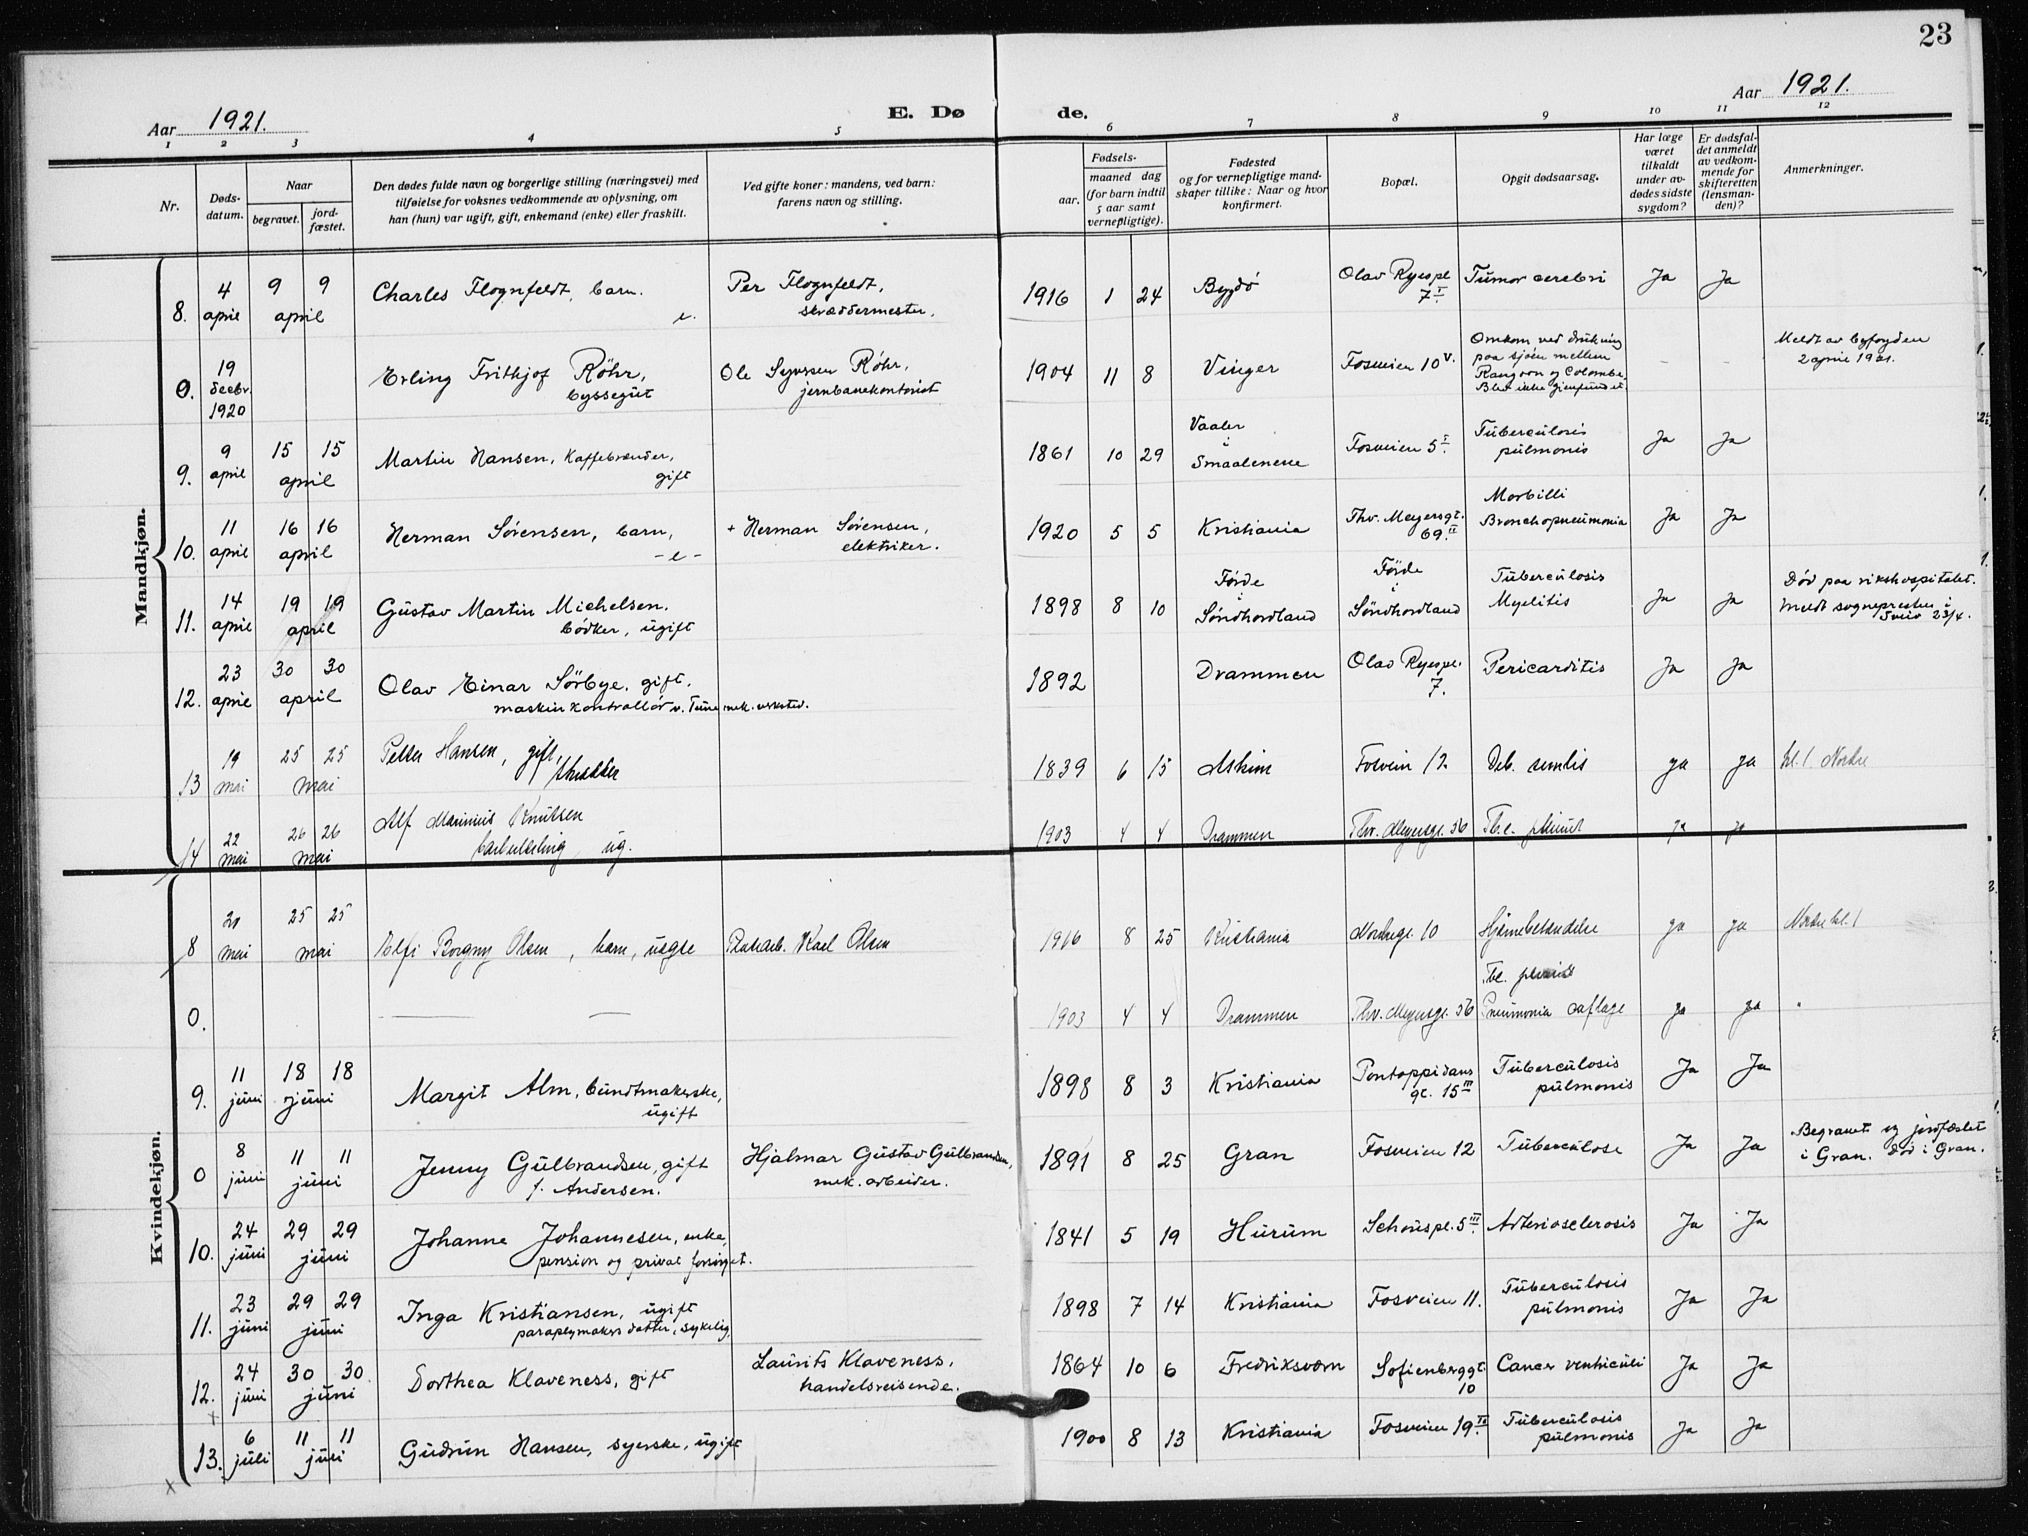 23
Aar 1921.
E. Dø de.
Aar 1921.
1 2 3 4 5 6 7 8 9 10 11 12
Nr.
Døds-
datum.
Naar
begravet.
jord-
fæstet.
Den dødes fulde navn og borgerlige stilling (næringsvei) med
tilføielse for voksnes vedkommende av oplysning, om
han (hun) var ugift, gift, enkemand (enke) eller fraskilt.
Ved gifte koner: mandens, ved barn:
farens navn og stilling.
Fødsels-
aar.
maaned dag
(for barn indtil
5 aar samt
vernepligtige).
Fødested
og for vernepligtige mand-
skaper tillike: Naar og hvor
konfirmert.
Bopæl.
Opgit dødsaarsag.
Har læge
været
tilkaldt
under av-
dødes sidste
sygdom?
Er dødsfal-
det anmeldt
av vedkom-
mende for
skifteretten
(lensman-
den)?
Anmerkninger.
Mandkjøn.
8.
4
april
9 9
april
Charles Flognfeldt, barn.
e.
Per Flognfeldt,
skræddermester.
1916 1 24
Bygdø
Olav Ryespl.
7.I
Tumor cerebri
Ja Ja
0.
19
decbr.
1920
Erling Frithjof Röhr,
byssegut
Ole Syvrsen Röhr,
jernbanekontorist
1904 11 8
Vinger
Fosveien 10 V.
Omkom ved drukning
paa sjøen mellem
Rangoon og Colombo.
Blev ikke gjenfundet.
– –
Meldt av byfogden
2 april 1921.
9.
9
april
15 15
april
Martin Hansen, Kaffebrænder,
gift
1861 10 29
Vaaler
i
Smaalenene
Fosveien 5 I.
Tuberculosis
pulmonis
Ja Ja
10.
11
april
16 16
april
Herman Sørensen, barn,
– e –
+ Herman Sørensen,
elektriker.
1920 5 5
Kristiania
Thv. Meyersgt.
69.II
Morbilli
Bronchopneumonia
Ja Ja
11.
14
april
19 19
april
Gustav Martin Michelsen.
bødker, ugift
1898 8 10
Førde
i
Søndhordland
Førde
i
Søndhordland
Tuberculosis
Myelitis
Ja Ja
Død paa rikshospitalet.
Meldt sognepresten i
Sveio 23/4.
12.
23
april
30 30
april
Olav Einar Sørbye, gift.
maskinkontrollør v. Tune mek. verksted.
1892
Drammen
Olav Ryespl.
7.
Pericarditis
Ja Ja
13
19
mai
25 25
mai
Petter Hansen, gift,
skrædder
1839 6 15
Askim
Fosvein 12
Deb. senilis
ja ja
kl. 1 Nordre
14
22
mai
26 26
mai
Alf Marinius Knutsen
ug.
1903 4 4
Drammen
Thv. Meyersgt. 56
Tbc.
ja ja
Kvindekjøn.
8
20
mai
25 25
mai
Elfi Borgny Olsen, barn, uegte
Karl Olsen
1916 8 25
Kristiania
10
Hjernebetændelse
ja ja
Nordre kl. 1
0.
— —
1903 4 4
Drammen
Thv. Meyersgt. 56
Tbc.
Pneumonia
ja ja
"
9.
11
juni
18 18
juni
Margit Alm, buntmakerske,
ugift
1898 8 3
Kristiania
Pontoppidans
gt. 15 III
Tuberculosis
pulmonis
Ja Ja
0
8
juni
11 11
juni
Jenny Gulbrandsen, gift
f. Andersen.
Hjalmar Gustav Gulbrandsen,
mek. arbeider.
1891 8 25
Gran
Fosveien 12
Tuberculose
Ja Ja
Begravet og jordfæstet
i Gran. Død i Gran.
10.
24
juni
29 29
juni
Johanne Johannesen, enke,
pension og privat forsørget.
1841 5 19
Hurum
Schouspl. 5 III
Arteriosclerosis
Ja Ja
11.
23
juni
29 29
juni
Inga Kristiansen, ugift
paraplymakers datter, sykelig.
1898 7 14
Kristiania
Fosveien 11.
Tuberculosis
pulmonis
Ja Ja
12.
24
juni
30 30
juni
Dorthea Klaveness, gift
Laurits Klaveness,
handelsreisende.
1864 10 6
Fredriksværn
Sofienberggt.
10
Cancer ventriculi
Ja Ja
13.
6
juli
11 11
juli
Gudrun Hansen, syerske, ugift
1900 8 13
Kristiania
Fosveien 19.II
Tuberculosis
pulmonis
Ja Ja